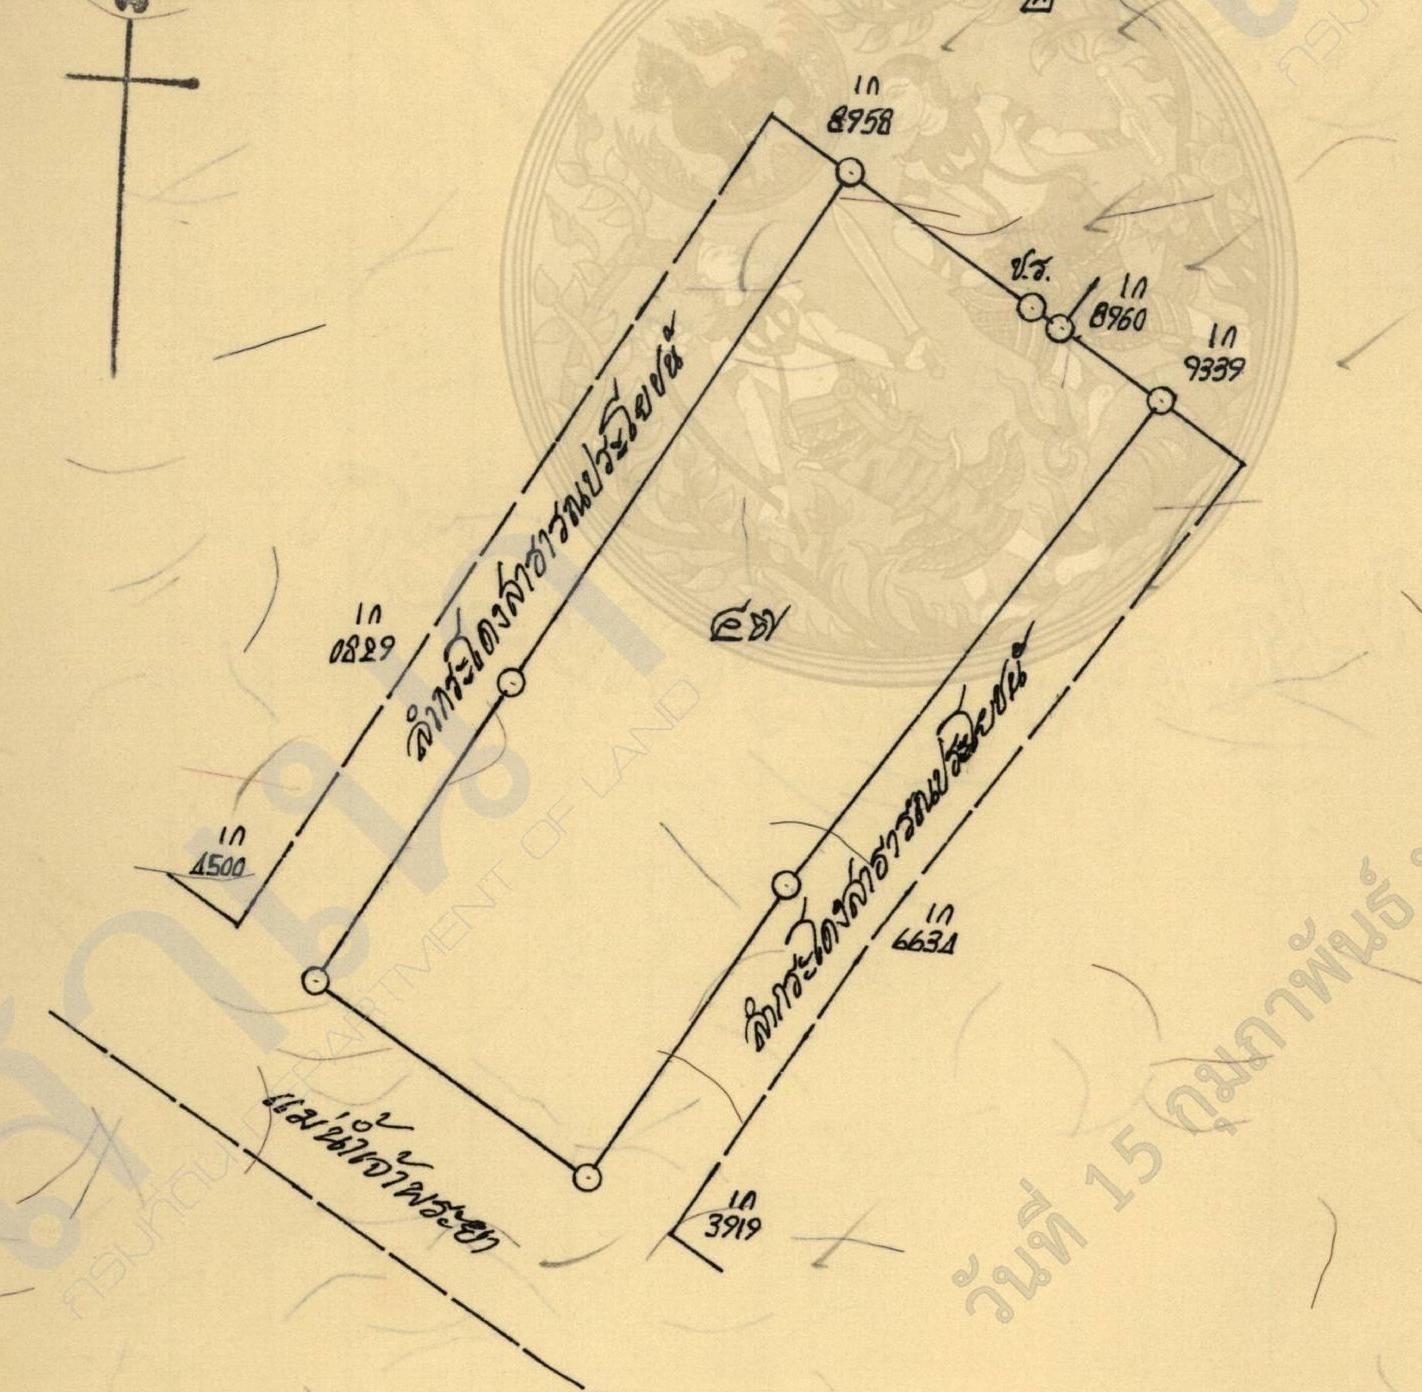 1ก
8958
ช.ร.
1ก
8960
1ก
9339
ลำกระโดงสาธารณประโยชน์
1ก
0829
1ก
4500
ลำกระโดงสาธารณประโยชน์
1ก
6634
1ก
3919
แม่น้ำเจ้าพระยา
DEPARTMENT OF LAND
กรมที่ดิน
วันที่ 15 กุมภาพันธ์